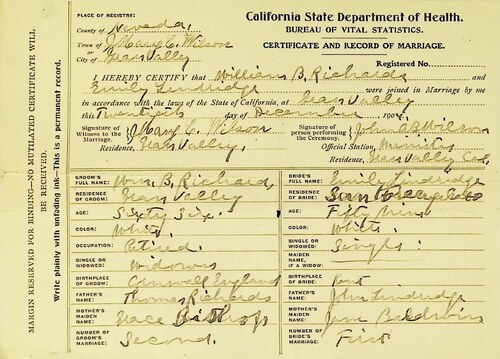 PLACE OF REGISTRY:
County of Nevada,
Town of J Mary C. Wilson
City of Grass Valley
California State Department of Health.
BUREAU OF VITAL STATISTICS.
CERTIFICATE AND RECORD OF MARRIAGE.
Registered No.
I HEREBY CERTIFY that William B. Richards and
Emily Lindridge were joined in Marriage by me
in accordance with the laws of the State of California, at Grass Valley
this Twentieth day of December 190
Signature of Witness to the Marriage, Mary C. Wilson
Residence, Grass Valley.
Signature of person performing the Ceremony, John A B Wilson
Official Station, Minister
Residence, Grass Valley Cal,
GROOM'S FULL NAME: Wm. B. Richard,
RESIDENCE OF GROOM: Grass Valley
AGE: Sixty Six.
COLOR: White.
OCCUPATION: Retired.
SINGLE OR WIDOWED: Widower
BIRTHPLACE OF GROOM: Cornwall England
FATHER'S NAME: Thomas Richards
MOTHER'S MAIDEN NAME: Grace Bishop
NUMBER OF GROOM'S MARRIAGE: Second.
BRIDE'S FULL NAME: Emily Lindridge
RESIDENCE OF BRIDE:
AGE: Fifty Nine
COLOR: White.
SINGLE OR WIDOWED: Single.
MAIDEN NAME, IF A WIDOW:
BIRTHPLACE OF BRIDE: Kent
FATHER'S NAME: John Lindridge
MOTHER'S MAIDEN NAME: Jane Baldwin
NUMBER OF BRIDE'S MARRIAGE: First
MARGIN RESERVED FOR BINDING—NO MUTILATED CERTIFICATE WILL BE RECEIVED.
Write plainly with unfading ink—This is a permanent record.